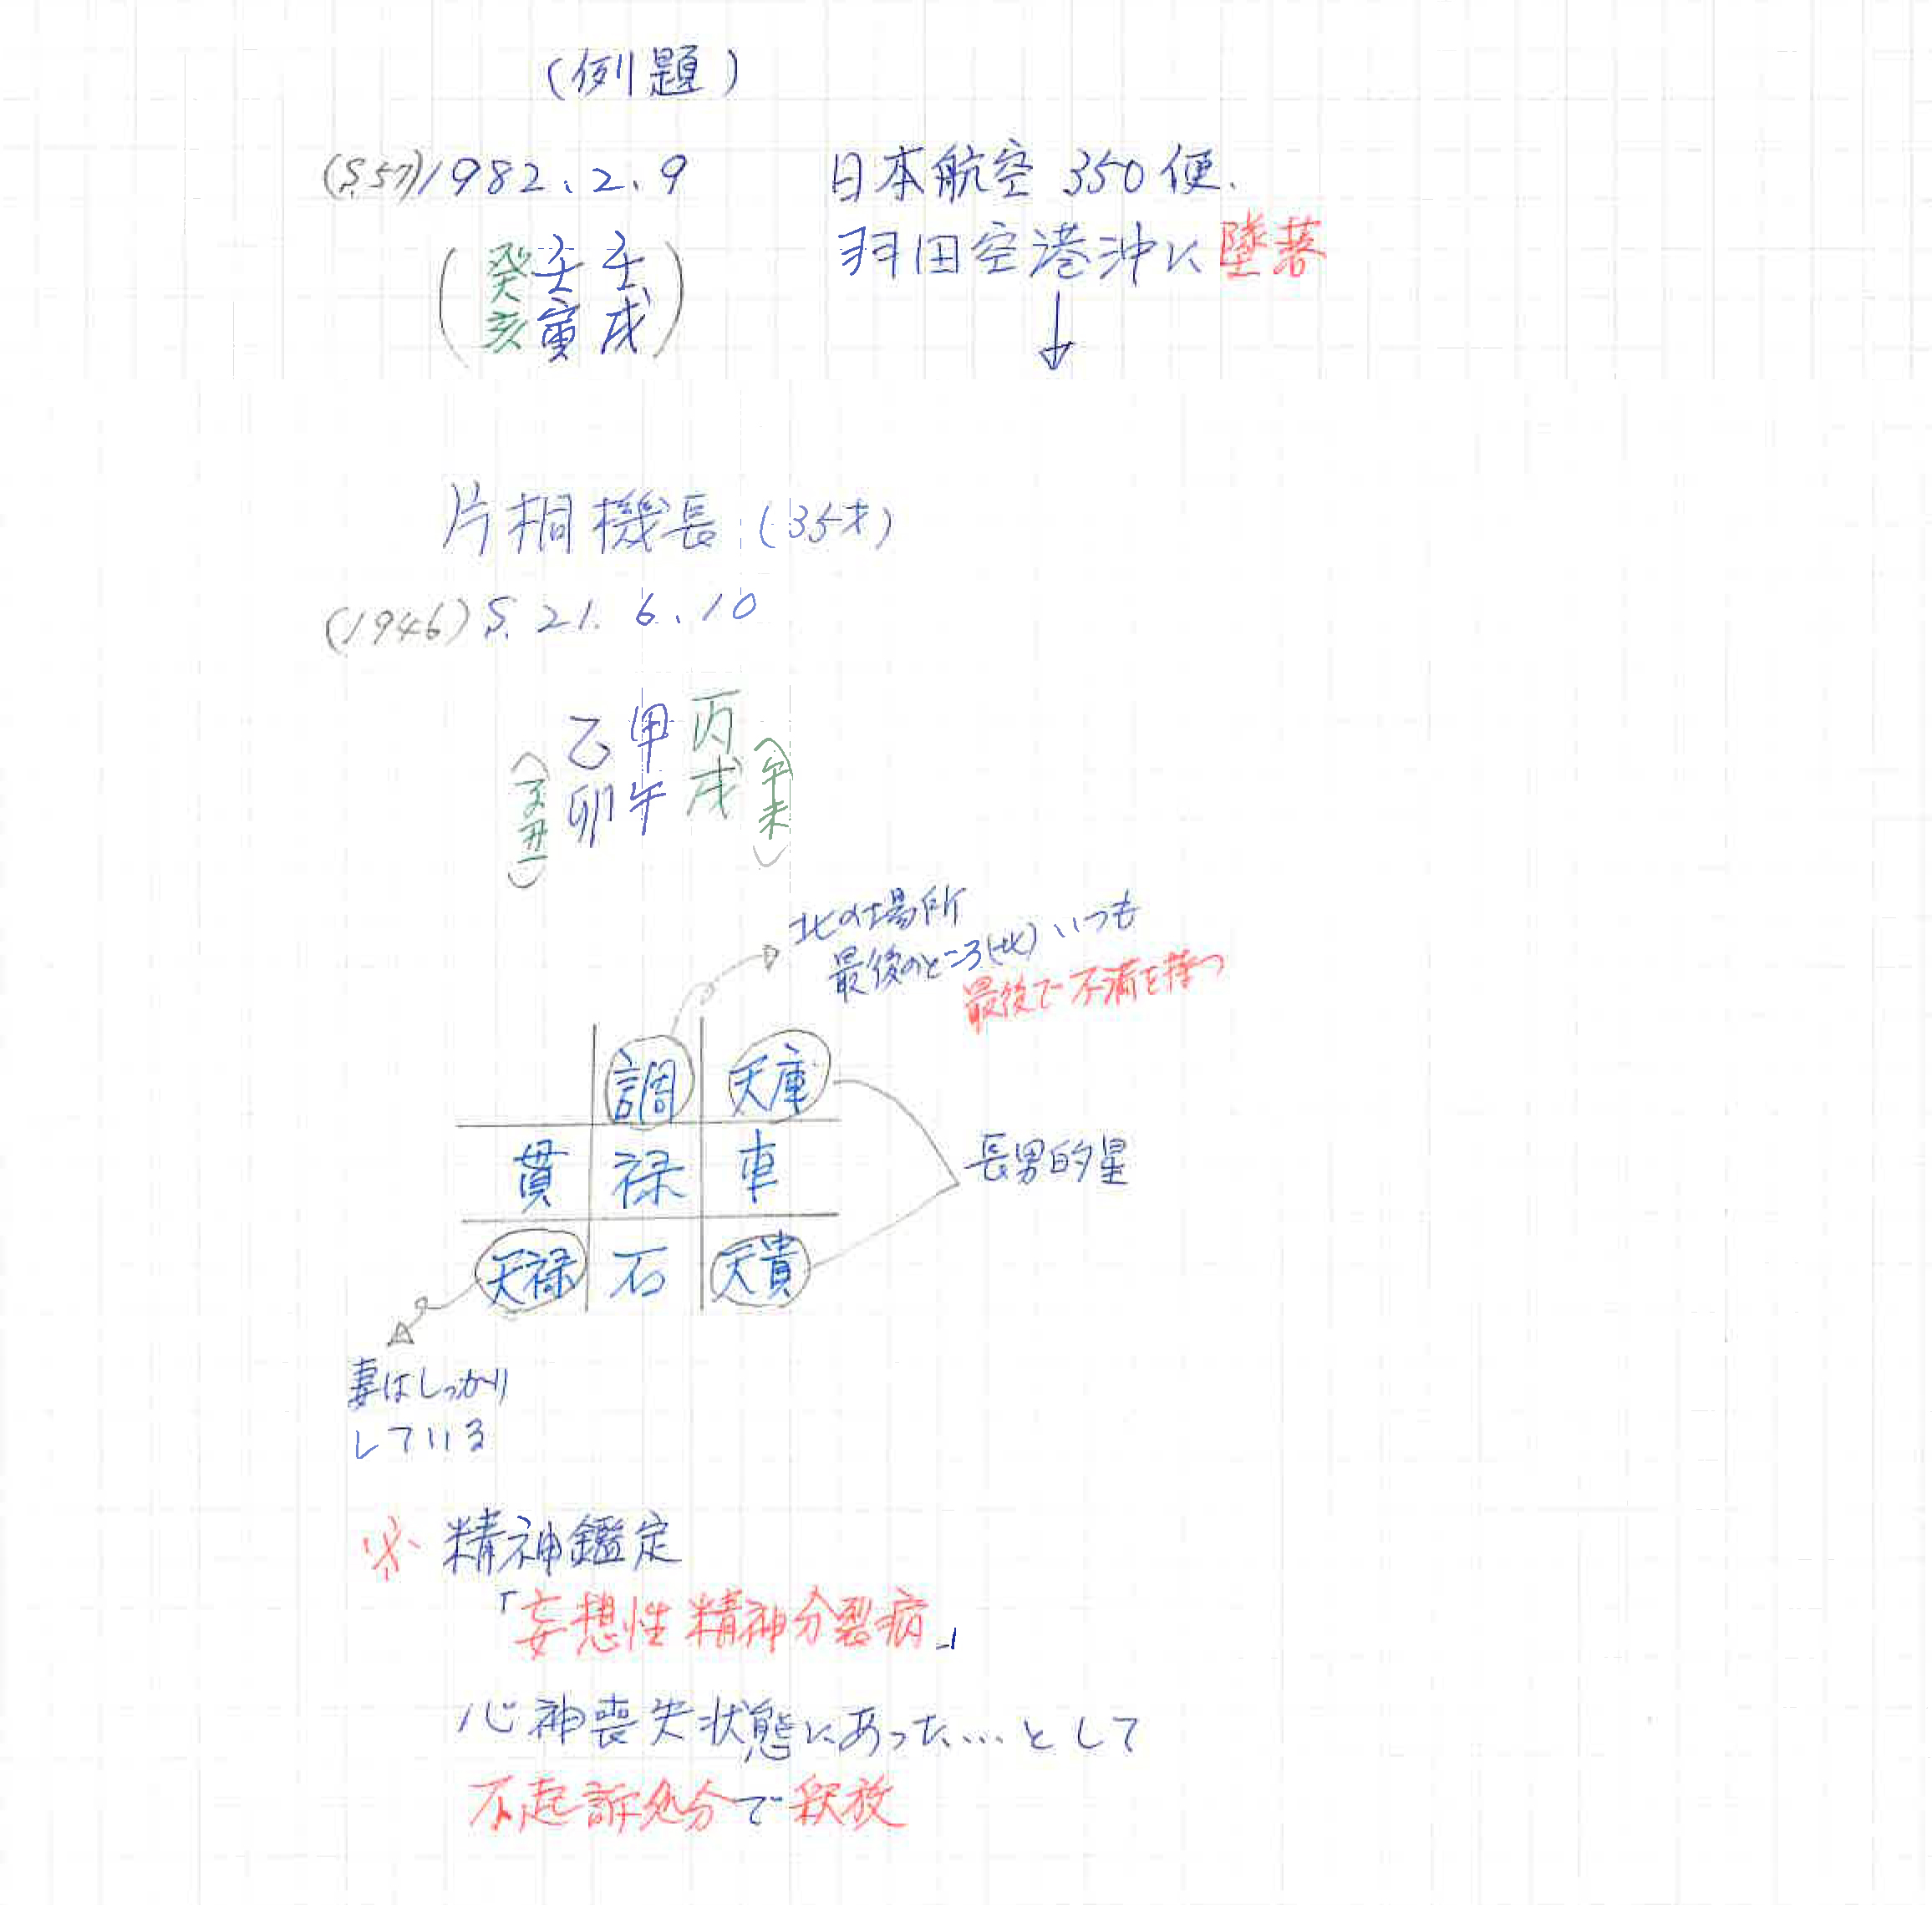 (例題)
(S.57)1982.2.9 日本航空 350便.
羽田空港沖に墜落
(癸壬壬)
(亥寅戌)
片桐機長 (35才)
(1946) S.21.6.10
乙甲丙
卯午戌
(子丑)
(午未)
北の場所
最後のところ(北)いつも
最後で不満を持つ
調 天庫
貫 禄 車
長男的星
天禄 石 天貴
妻はしっかり
している
※ 精神鑑定
「妄想性精神分裂病」
心神喪失状態にあった…として
不起訴処分で釈放